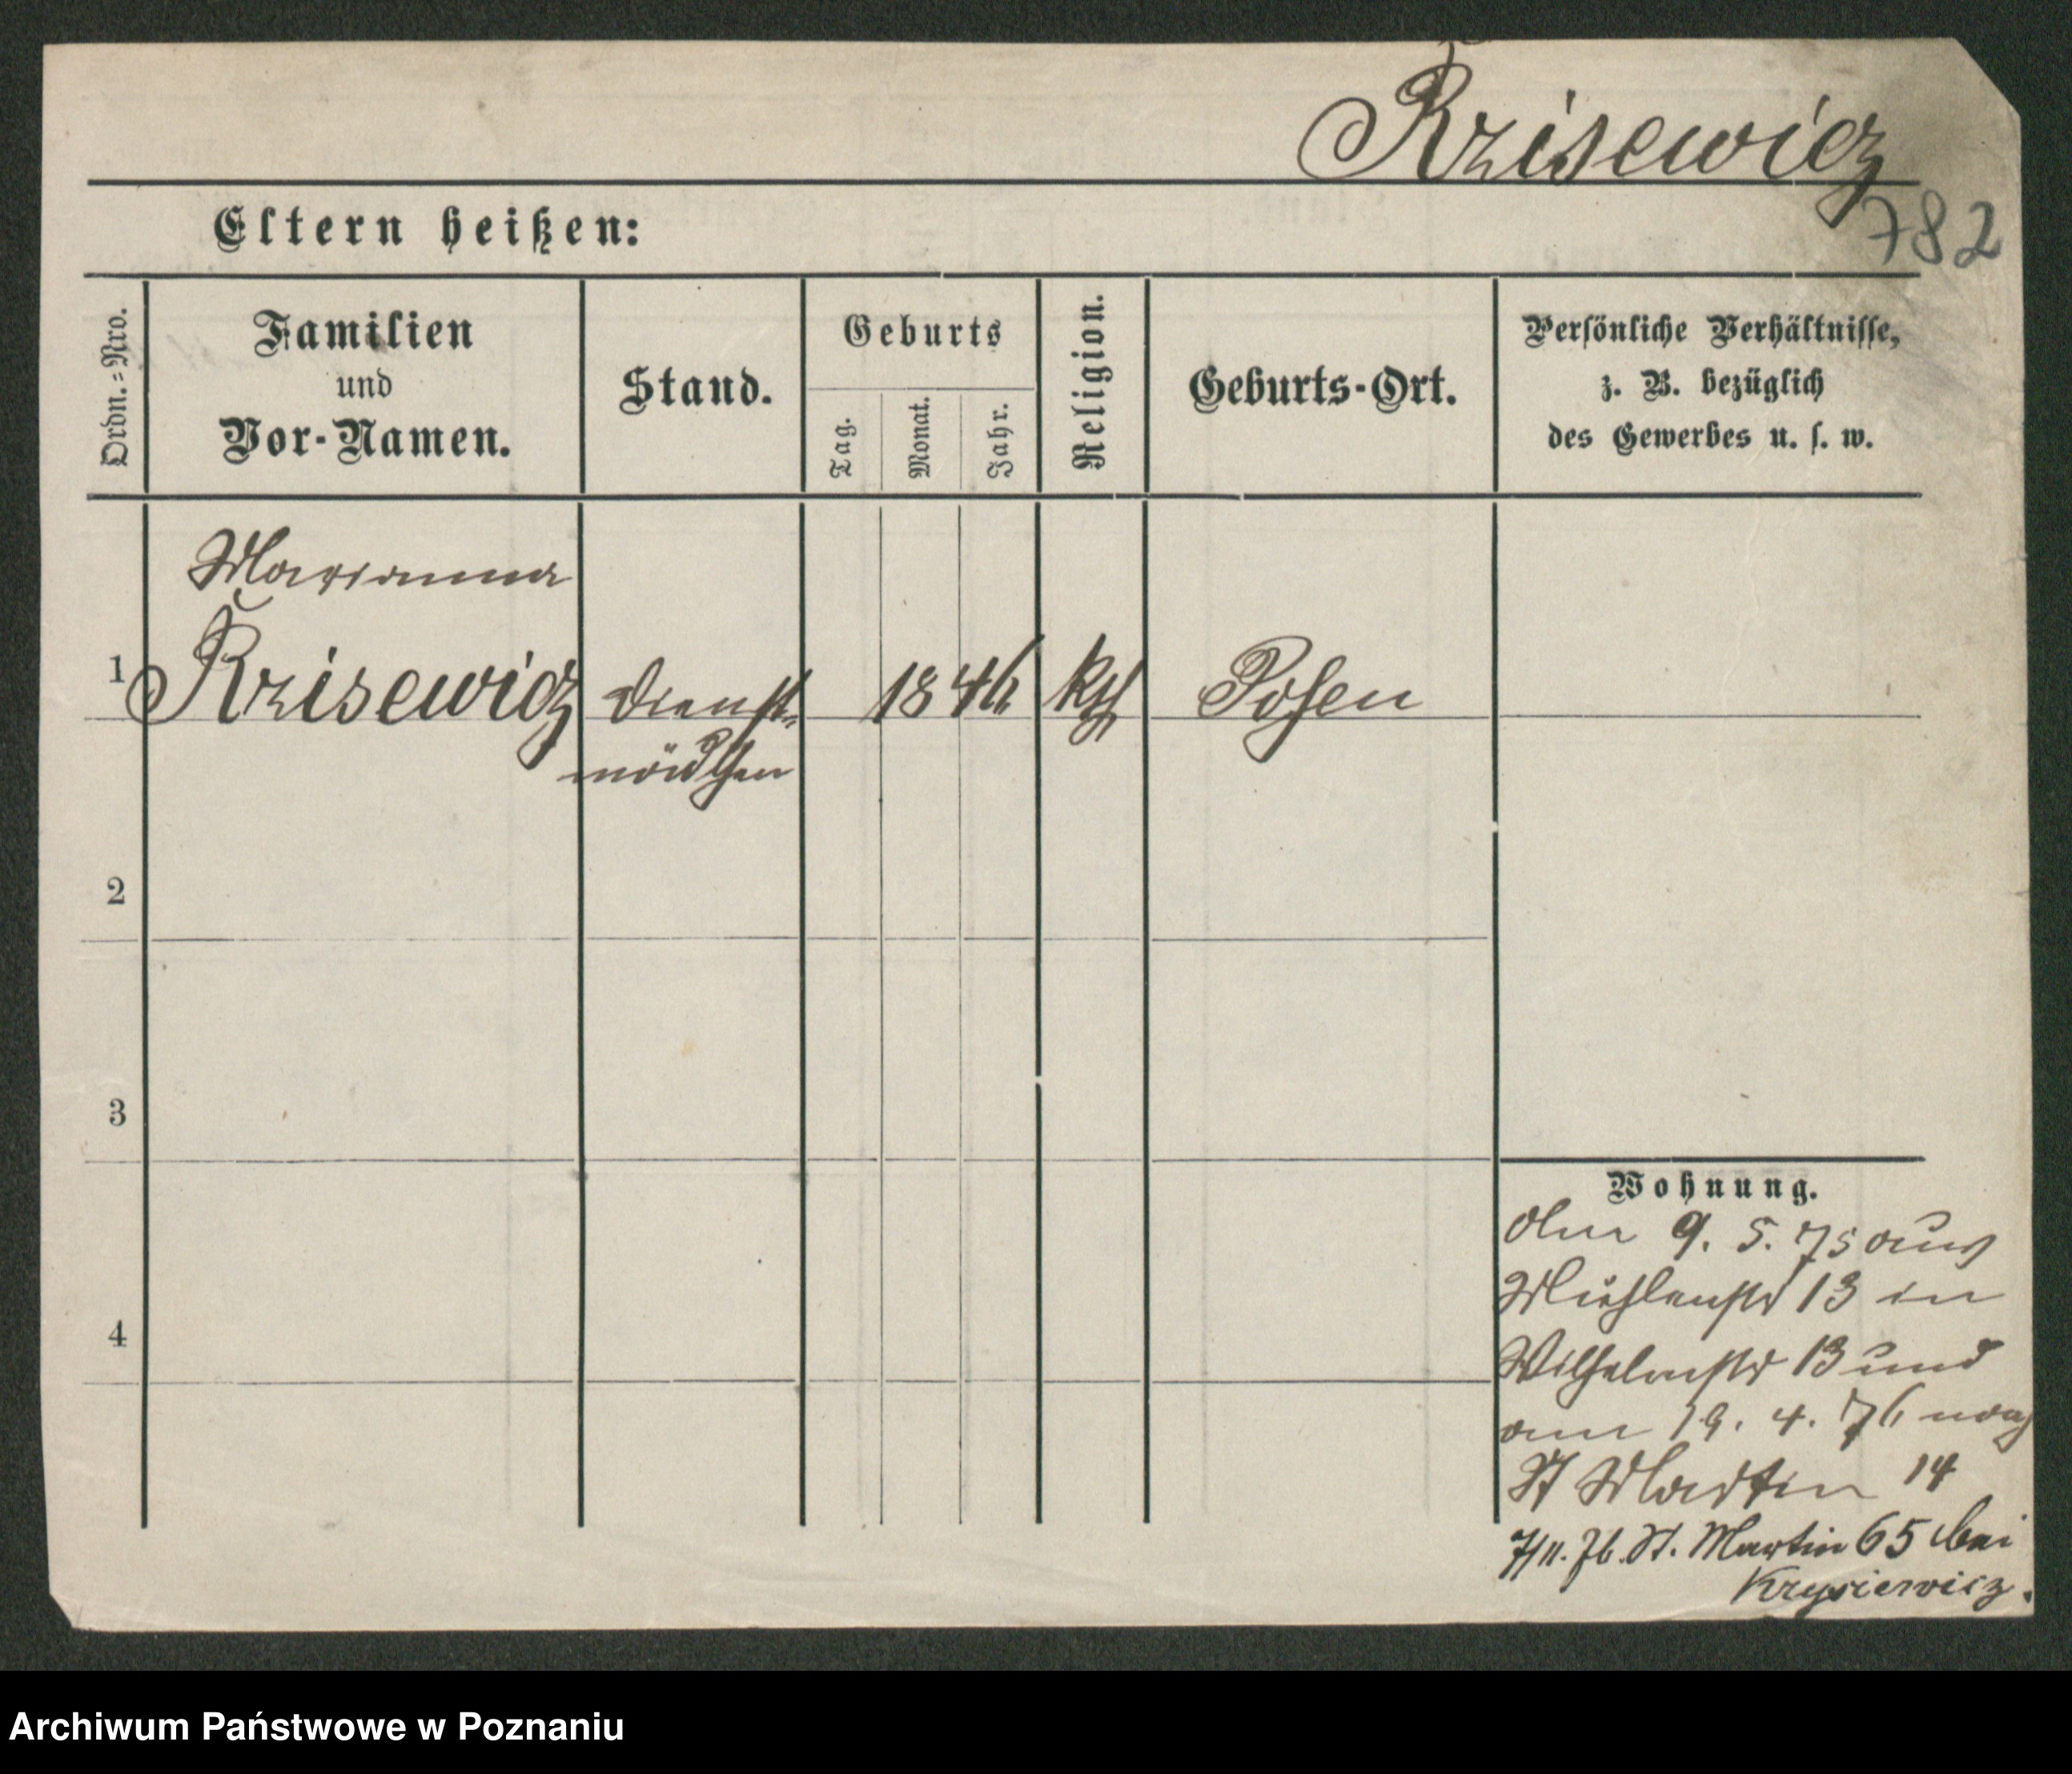 Rzisewicz
782
Eltern heißen:
Ordn.-Nro.
Familien
und
Vor-Namen.
Stand.
Geburts
Tag.
Monat.
Jahr.
Religion.
Geburts-Ort.
Persönliche Verhältnisse,
z. B. bezüglich
des Gewerbes u. s. w.
Marianna
1 Rzisewicz Dienst- 1846 kth Posen
mädchen
2
3
4
Wohnung.
Am 9. 5. 75 aus
Mühlenstr 13 in
Wilhelmstr 13 und
am 19. 4. 76 nach
St Martin 14
7/11. 76. St. Martin 65 bei
Krysiewicz.
Archiwum Państwowe w Poznaniu